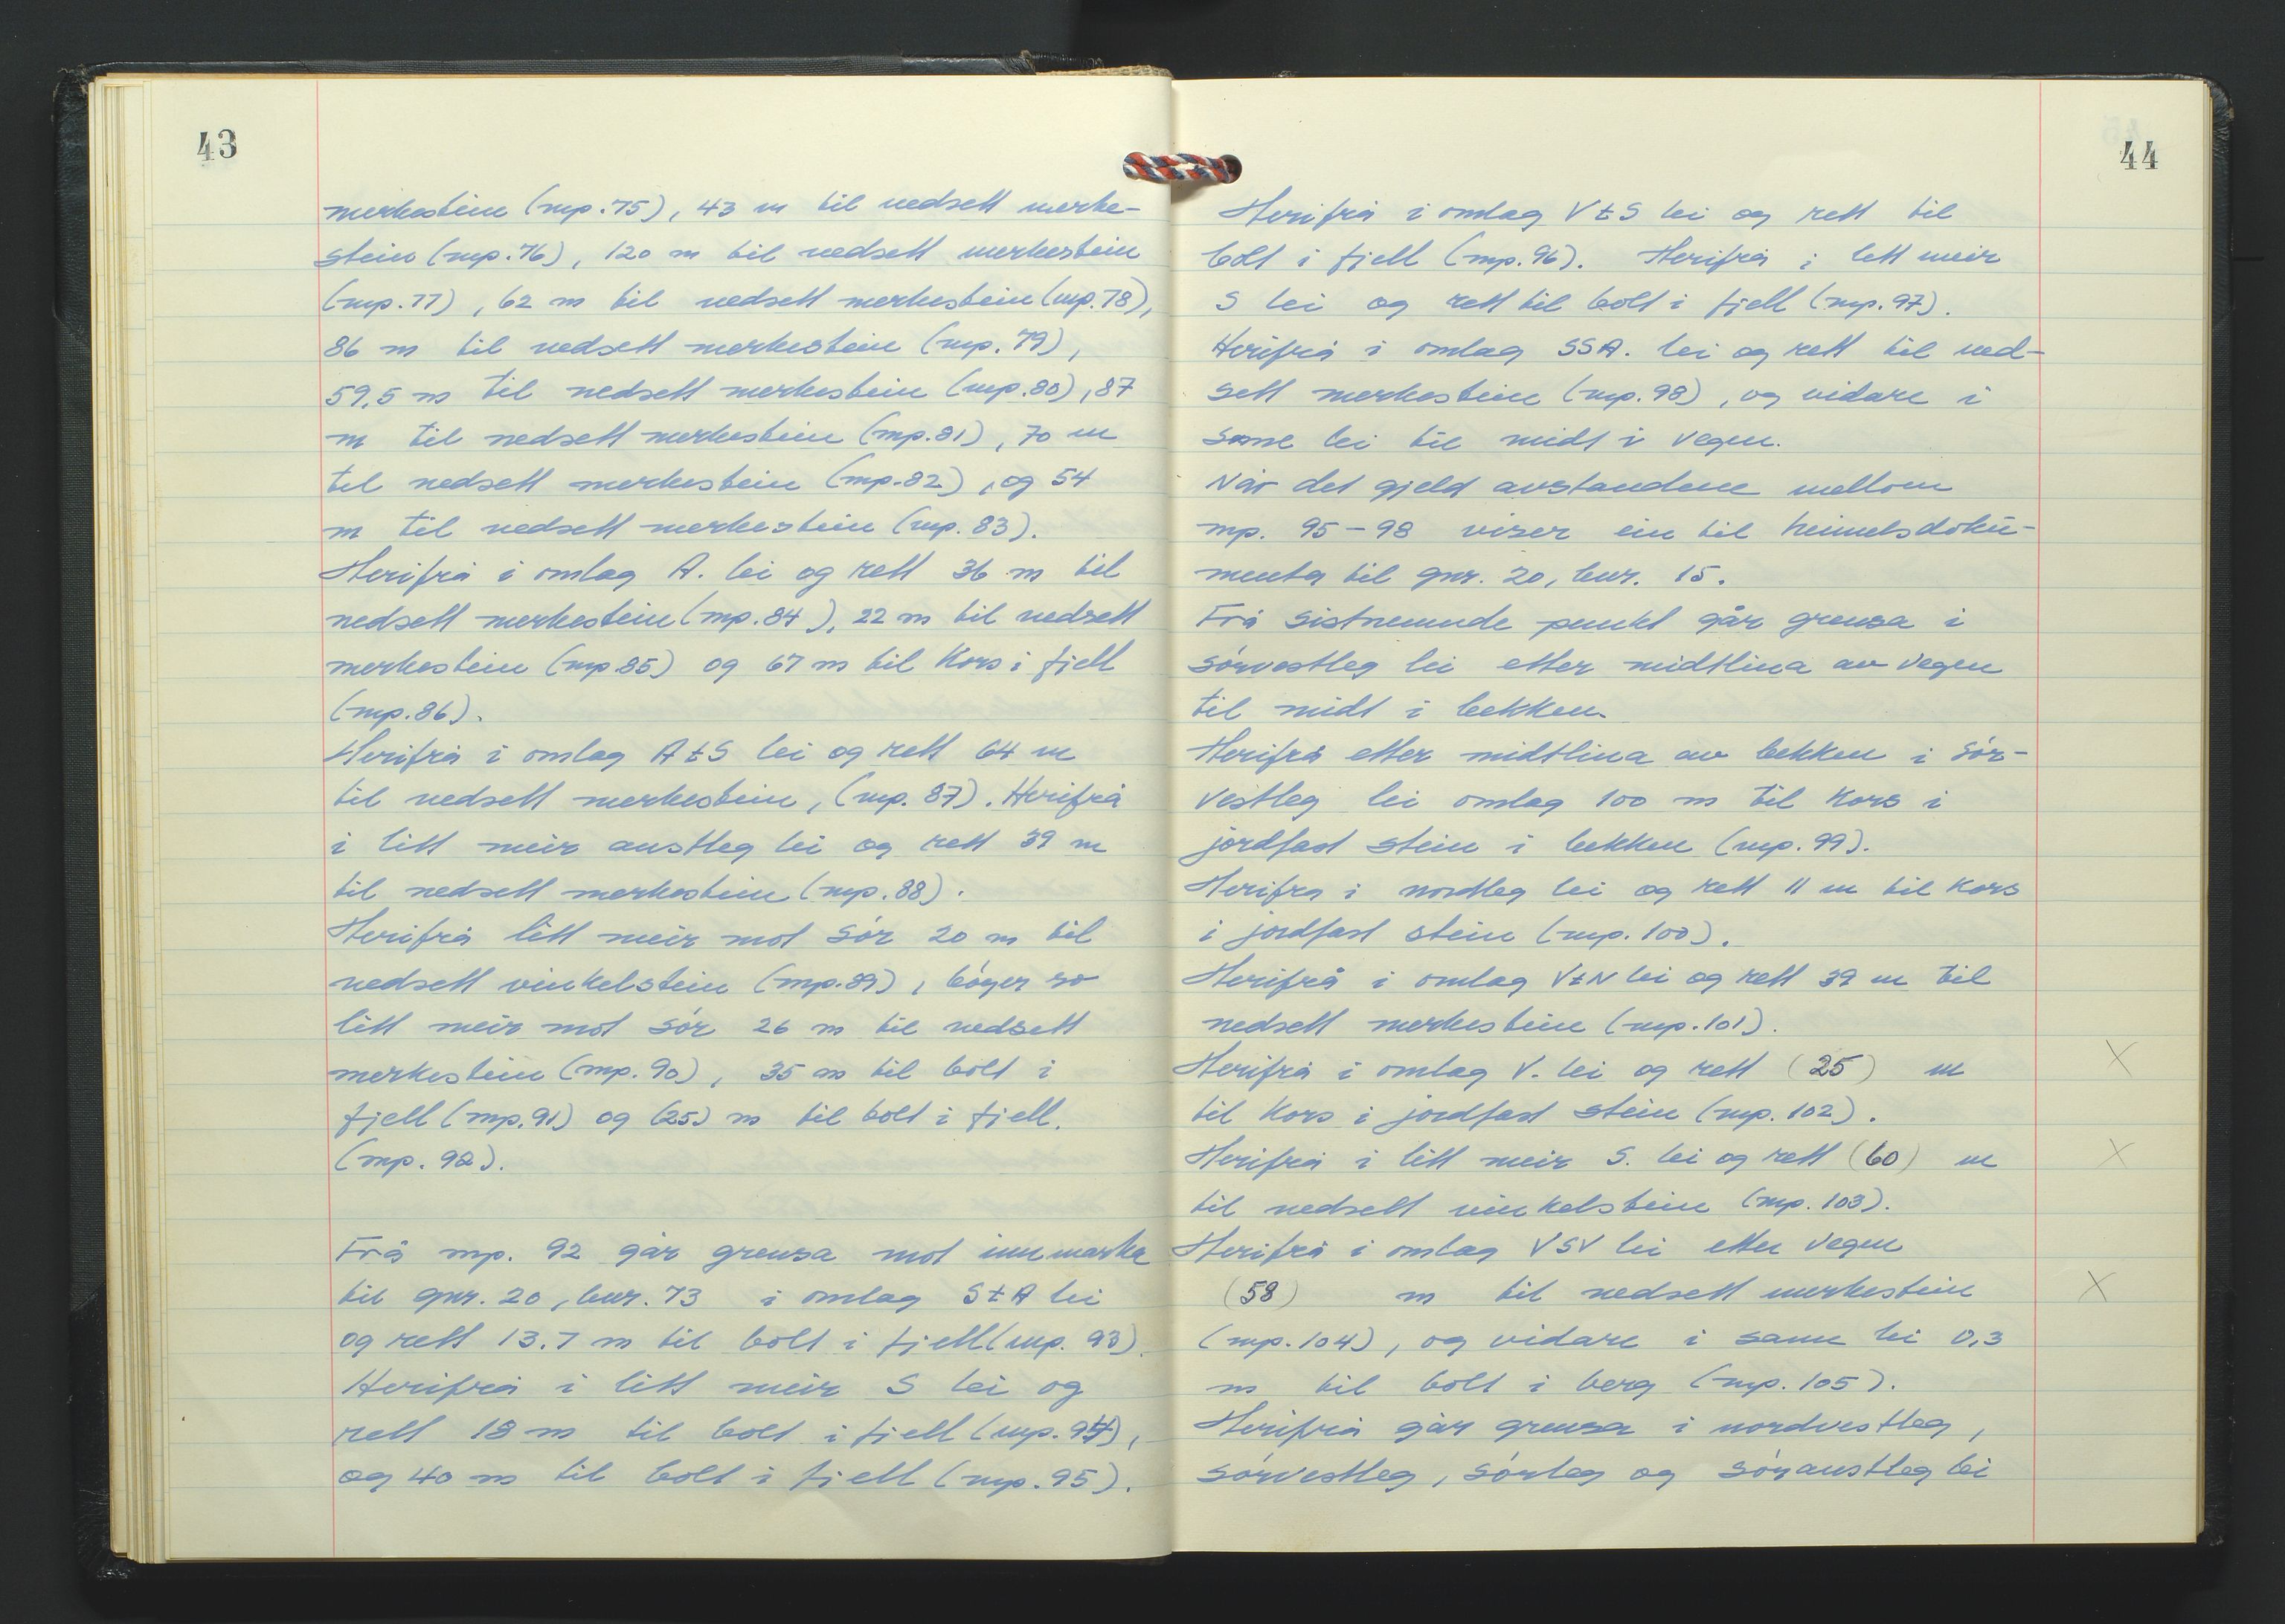 43
merkestein (mp. 75), 43 m til nedsett merke-
stein (mp. 76), 120 m til nedsett merkestein
(mp. 77), 62 m til nedsett merkestein (mp. 78),
86 m til nedsett merkestein (mp. 79),
59,5 m til nedsett merkestein (mp. 80), 87
m til nedsett merkestein (mp. 81), 70 m
til nedsett merkestein (mp. 82), og 54
m til nedsett merkestein (mp. 83).
Herifrå i omlag A. lei og rett 36 m til
nedsett merkestein (mp. 84), 22 m til nedsett
merkestein (mp 85) og 67 m til kors i fjell
(mp. 86).
Herifrå i omlag A t S lei og rett 64 m
til nedsett merkestein, (mp. 87). Herifrå
i litt meir austleg lei og rett 39 m
til nedsett merkestein (mp. 88).
Herifrå litt meir mot sór 20 m til
nedsett vinkelstein (mp. 89), bóyer so
litt meir mot sór 26 m til nedsett
merkestein (mp. 90), 35 m til bolt i
fjell (mp. 91) og (25) m til bolt i fjell.
(mp. 92).
Frå mp. 92 går grensa mot innmarka
til gnr. 20, bnr. 73 i omlag S t A lei
og rett 13.7 m til bolt i fjell (mp. 93).
Herifrå i litt meir S lei og
rett 18 m til bolt i fjell (mp. 94),
og 40 m til bolt i fjell (mp. 95).
44
Herifrå i omlag V t S lei og rett til
bolt i fjell (mp. 96). Herifrå i lett meir
S lei og rett til bolt i fjell (mp. 97).
Herifrå i omlag SSA. lei og rett til ned-
sett merkestein (mp. 98), og vidare i
same lei til midt i vegen.
Når det gjeld avstandene mellom
mp. 95-98 viser ein til heimelsdoku-
menta til gnr. 20, bnr. 15.
Frå sistnemnde punkt går grensa i
sórvestleg lei etter midtlina av vegen
til midt i bekken.
Herifrå etter midtlina av bekken i sór-
vestleg lei omlag 100 m til kors i
jordfast stein i bekken (mp. 99).
Herifra i nordleg lei og rett 11 m til kors
i jordfast stein (mp. 100).
Herifrå i omlag V t N lei og rett 39 m til
nedsett merkestein (mp. 101).
Herifrå i omlag V. lei og rett (25) m X
til kors i jordfast stein (mp. 102).
Herifrå i litt meir S. lei og rett (60) m X
til nedsett vinkelstein (mp. 103).
Herifrå i omlag VSV lei etter vegen
(58) m til nedsett merkestein X
(mp. 104), og vidare i same lei 0,3
m til bolt i berg (mp. 105).
Herifrå går grensa i nordvestleg,
sórvestleg, sórleg og sóraustleg lei